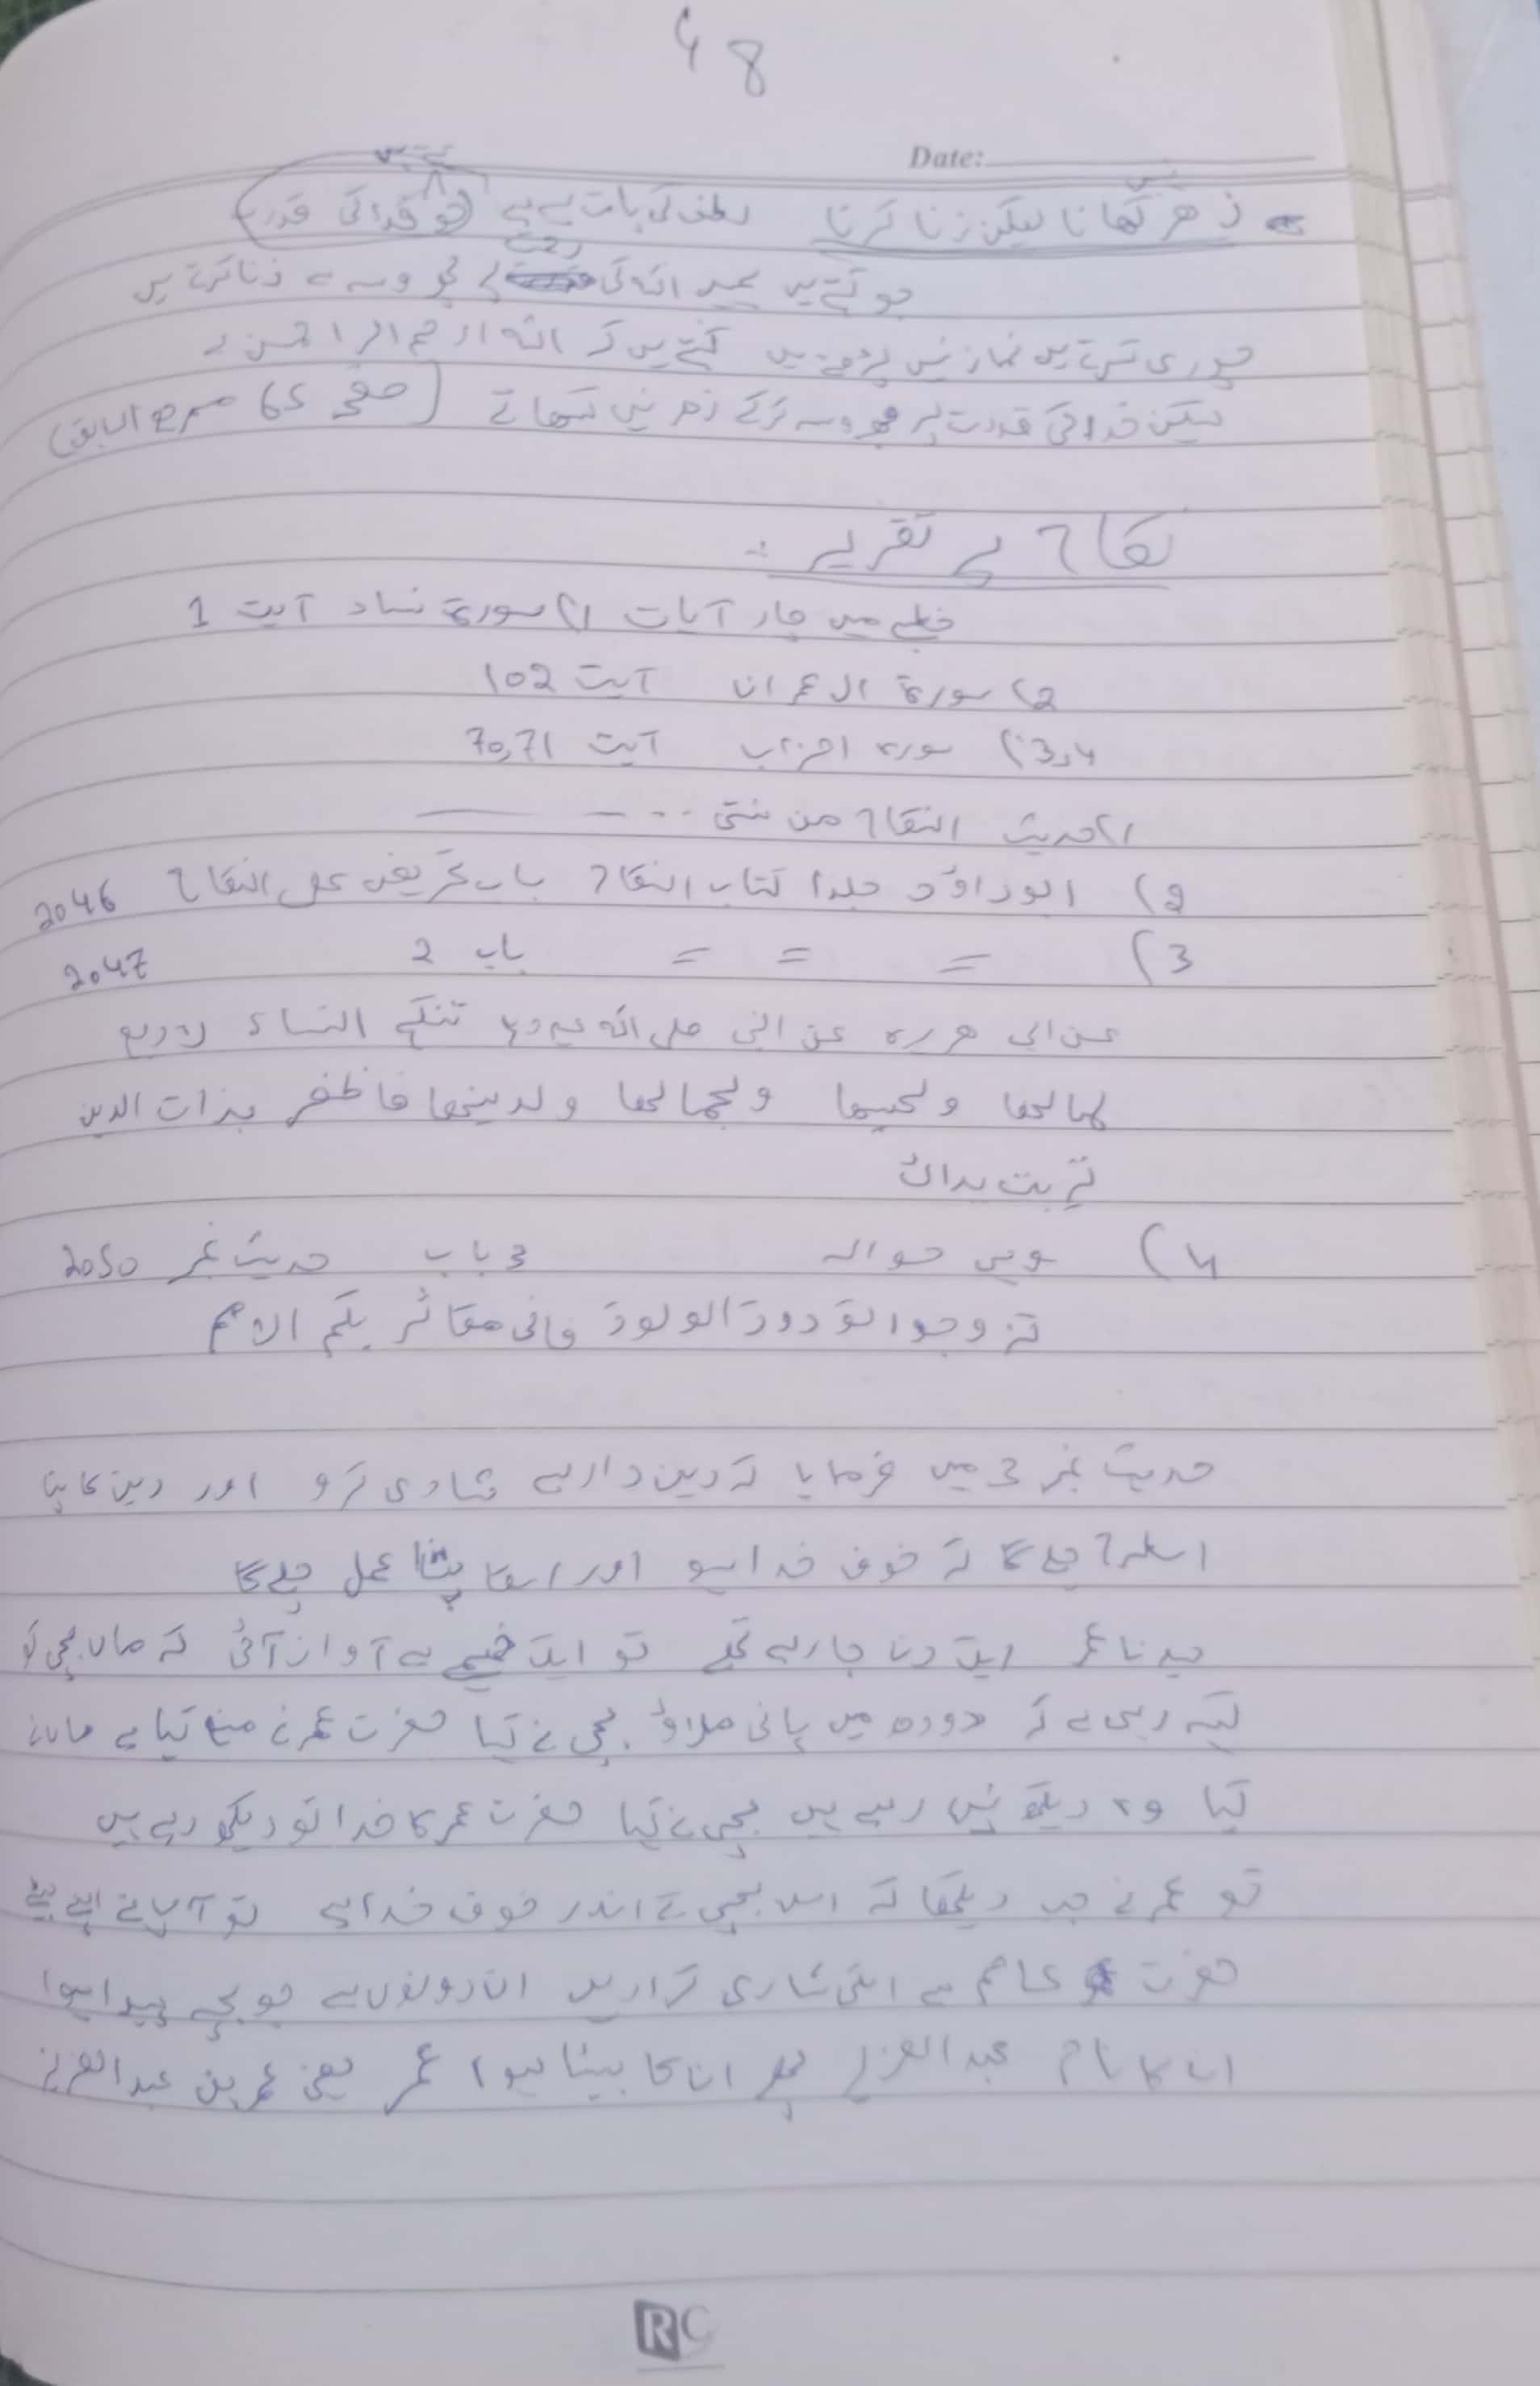 48
Date:
نہیں
کہتے ہیں
زھر کھانا لیکن زنا کرنا لطف کی بات یہ ہے (جو خدا کی قدرت)
رحمت
جو کہتے ہیں ہمیں اللہ کی پے بھروسہ ہے زنا کرتے ہیں
چوری کرتے ہیں نماز نہیں پڑھتے ہیں کہتے ہیں کہ اللہ ارحم الراحمین ہے
لیکن خدا کی قدرت پر بھروسہ کرکے زھر نہیں کھاتے (صفحہ 65 مرجع السابق)
نکاح پے تقریر :
خطبے میں چار آیات 1) سورۃ نساء آیت 1
2) سورۃ ال عمران آیت 102
3,4) سورہ احزاب آیت 70,71
1) حدیث النکاح من سنتی ...
2) ابوداؤد جلد 1 کتاب النکاح باب تحریض علی النکاح 2046
3) = = = باب 2 2047
عن ابی ھریرہ عن النبی صلی اللہ علیہ وسلم تنکح النساء لاربع
لمالھا ولحسبھا ولجمالھا ولدینھا فاظفر بذات الدین
تربت یداک
4) وہی حوالہ 3 باب حدیث نمبر 2050
تزوجوا لودود الولود فانی مکاثر بکم الامم
حدیث نمبر 3 میں فرمایا کہ دین دار سے شادی کرو اور دین کا پتا
اسطرح چلے گا کہ خوف خدا ہو اور اسکا پتا عمل چلے گا
سیدنا عمر ایک دن جا رہے تھے تو ایک خیمے سے آواز آئی کہ ماں بچی کو
کہہ رہی ہے کہ دودھ میں پانی ملاؤ بچی نے کہا حضرت عمر نے منع کیا ہے ماں نے
کہا وہ دیکھ نہیں رہے ہیں بچی نے کہا حضرت عمر کا خدا تو دیکھ رہے ہیں
تو عمر نے جب دیکھا کہ اس بچی کے اندر خوف خدا ہے تو آپ نے اپنے بیٹے
حضرت عاصم سے اسکی شادی کرادیں ان دونوں سے جو بچے پیدا ہوا
ان کا نام عبد العزیز پھر ان کا بیٹا ہوا عمر یعنی عمر بن عبد العزیز
RC